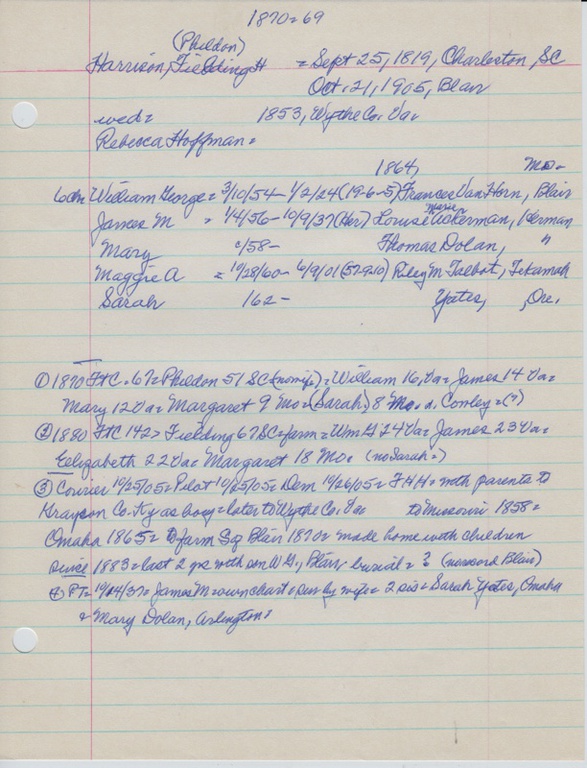 1870=69
(Pheldon)
Harrison, Fielding H = Sept 25, 1819, Charleston, SC
Oct. 21, 1905, Blair
wed= 1853, Wythe Co. Va.
Rebecca Hoffman=
1864, Mo=
William George = 3/10/54 - 1/2/24 Frances Van Horn, Blair
James M = 1/4/56 - 10/9/37 (Her) Louise Marie Ackerman, Herman
Mary /58 - Thomas Dolan, "
Maggie A = 10/28/60 - 6/9/01 Riley M Talbot, Tekamah
Sarah 162 - Yates, , Ore.
① 1870 FtC. 67= Pheldon 51 SC (no wife)= William 16, Va= James 14 Va=
Mary 12 Va= Margaret 9 Mo= (Sarah) 8 Mo. Conley = (")
② 1880 FtC 142= Fielding 67 SC= farm= Wm G 24 Va= James 23 Va=
Elizabeth 22 Va= Margaret 18 Mo= (no Sarah=)
③ Courier 10/25/05= Pilot 10/25/05= Dem 10/26/05= FHH= with parents to
Grayson Co. Ky as boy= later to Wythe Co. Va to Missouri 1858=
Omaha 1865= to farm Blair 1870= made home with children
since 1883= last 2 yrs with son W.G., Blair, burial = ? (no record Blair)
④ PT= James M= own chart = sur by wife= 2 sis= Sarah Yates, Omaha
& Mary Dolan, Arlington=